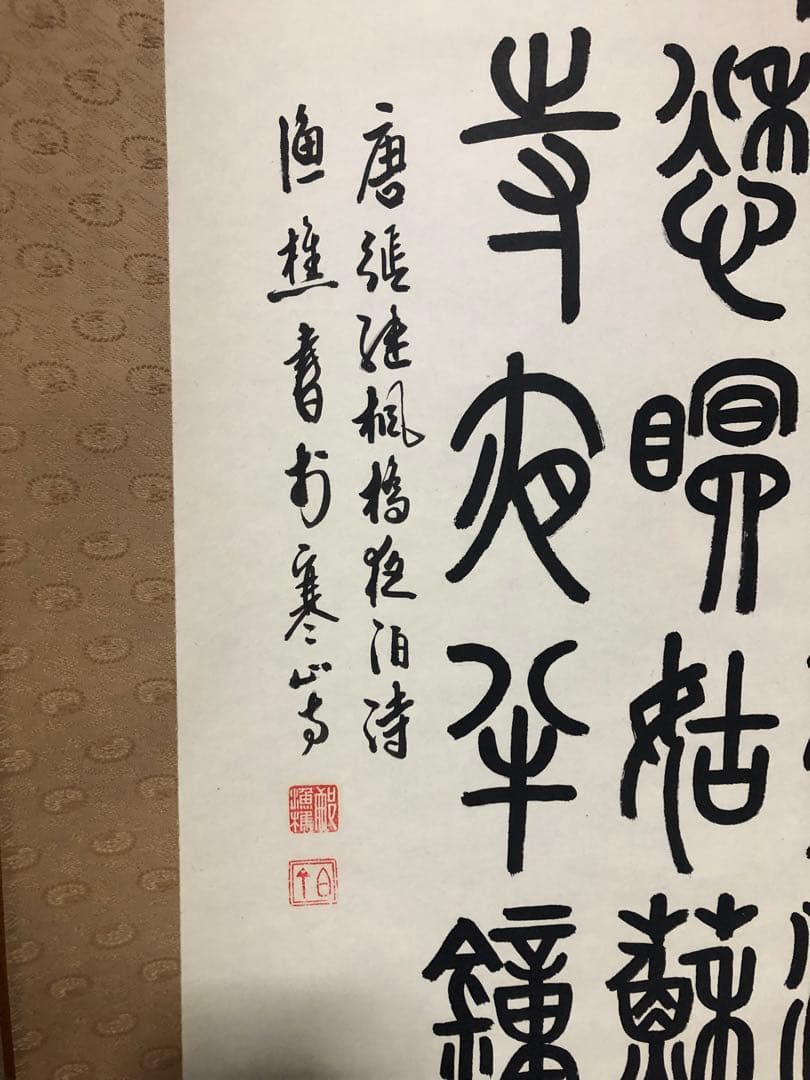 愁瞑姑蘇
寺夜半鐘
唐張繼楓橋夜泊詩
漁樵書於寒山寺
漁樵